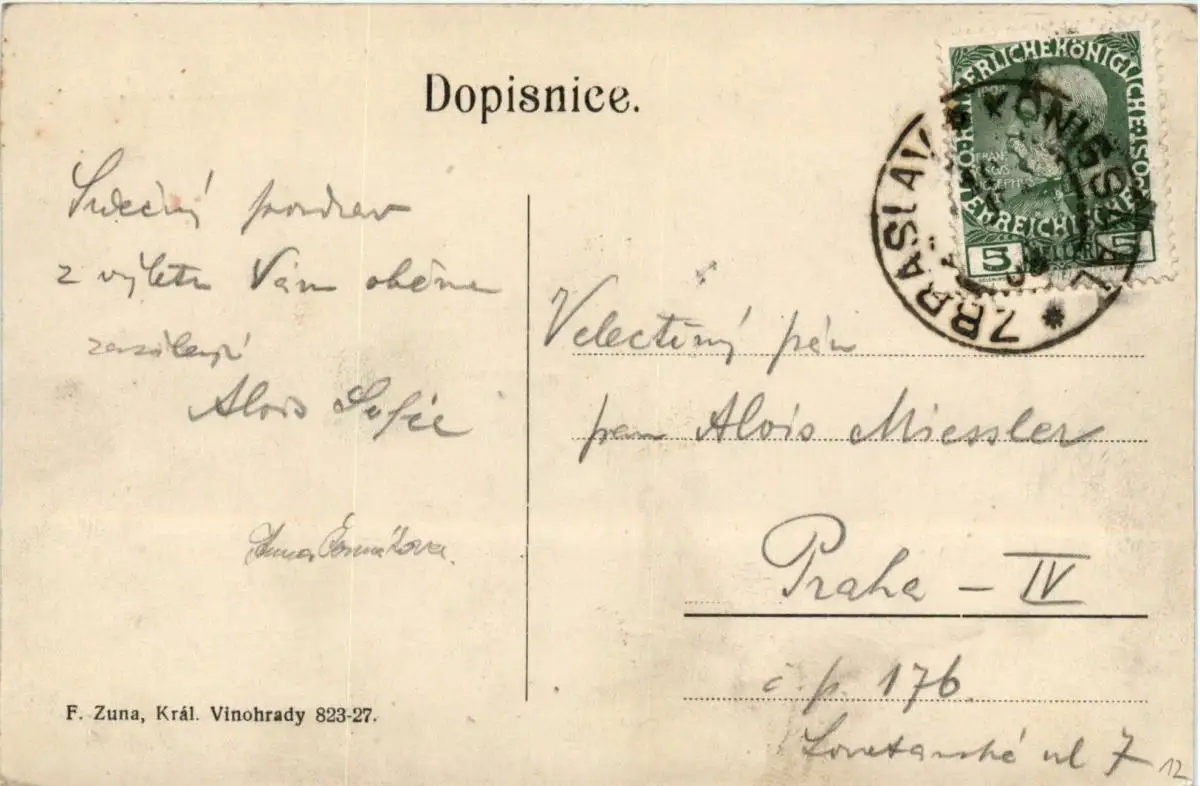 Dopisnice.
Srdečný pozdrav
z výletu Vám oběma
zasílají
Alois
Anna
F. Zuna, Král. Vinohrady 823-27.
KAISERLICHE KÖNIGLICHE ÖSTERREICHISCHE
5 HELLER 5
ZBRASLAV * KÖNIGSAAL *
Velectěný pán
pan Alois Miessler
Praha - IV
č. p. 176
Loretanské ul 7
12